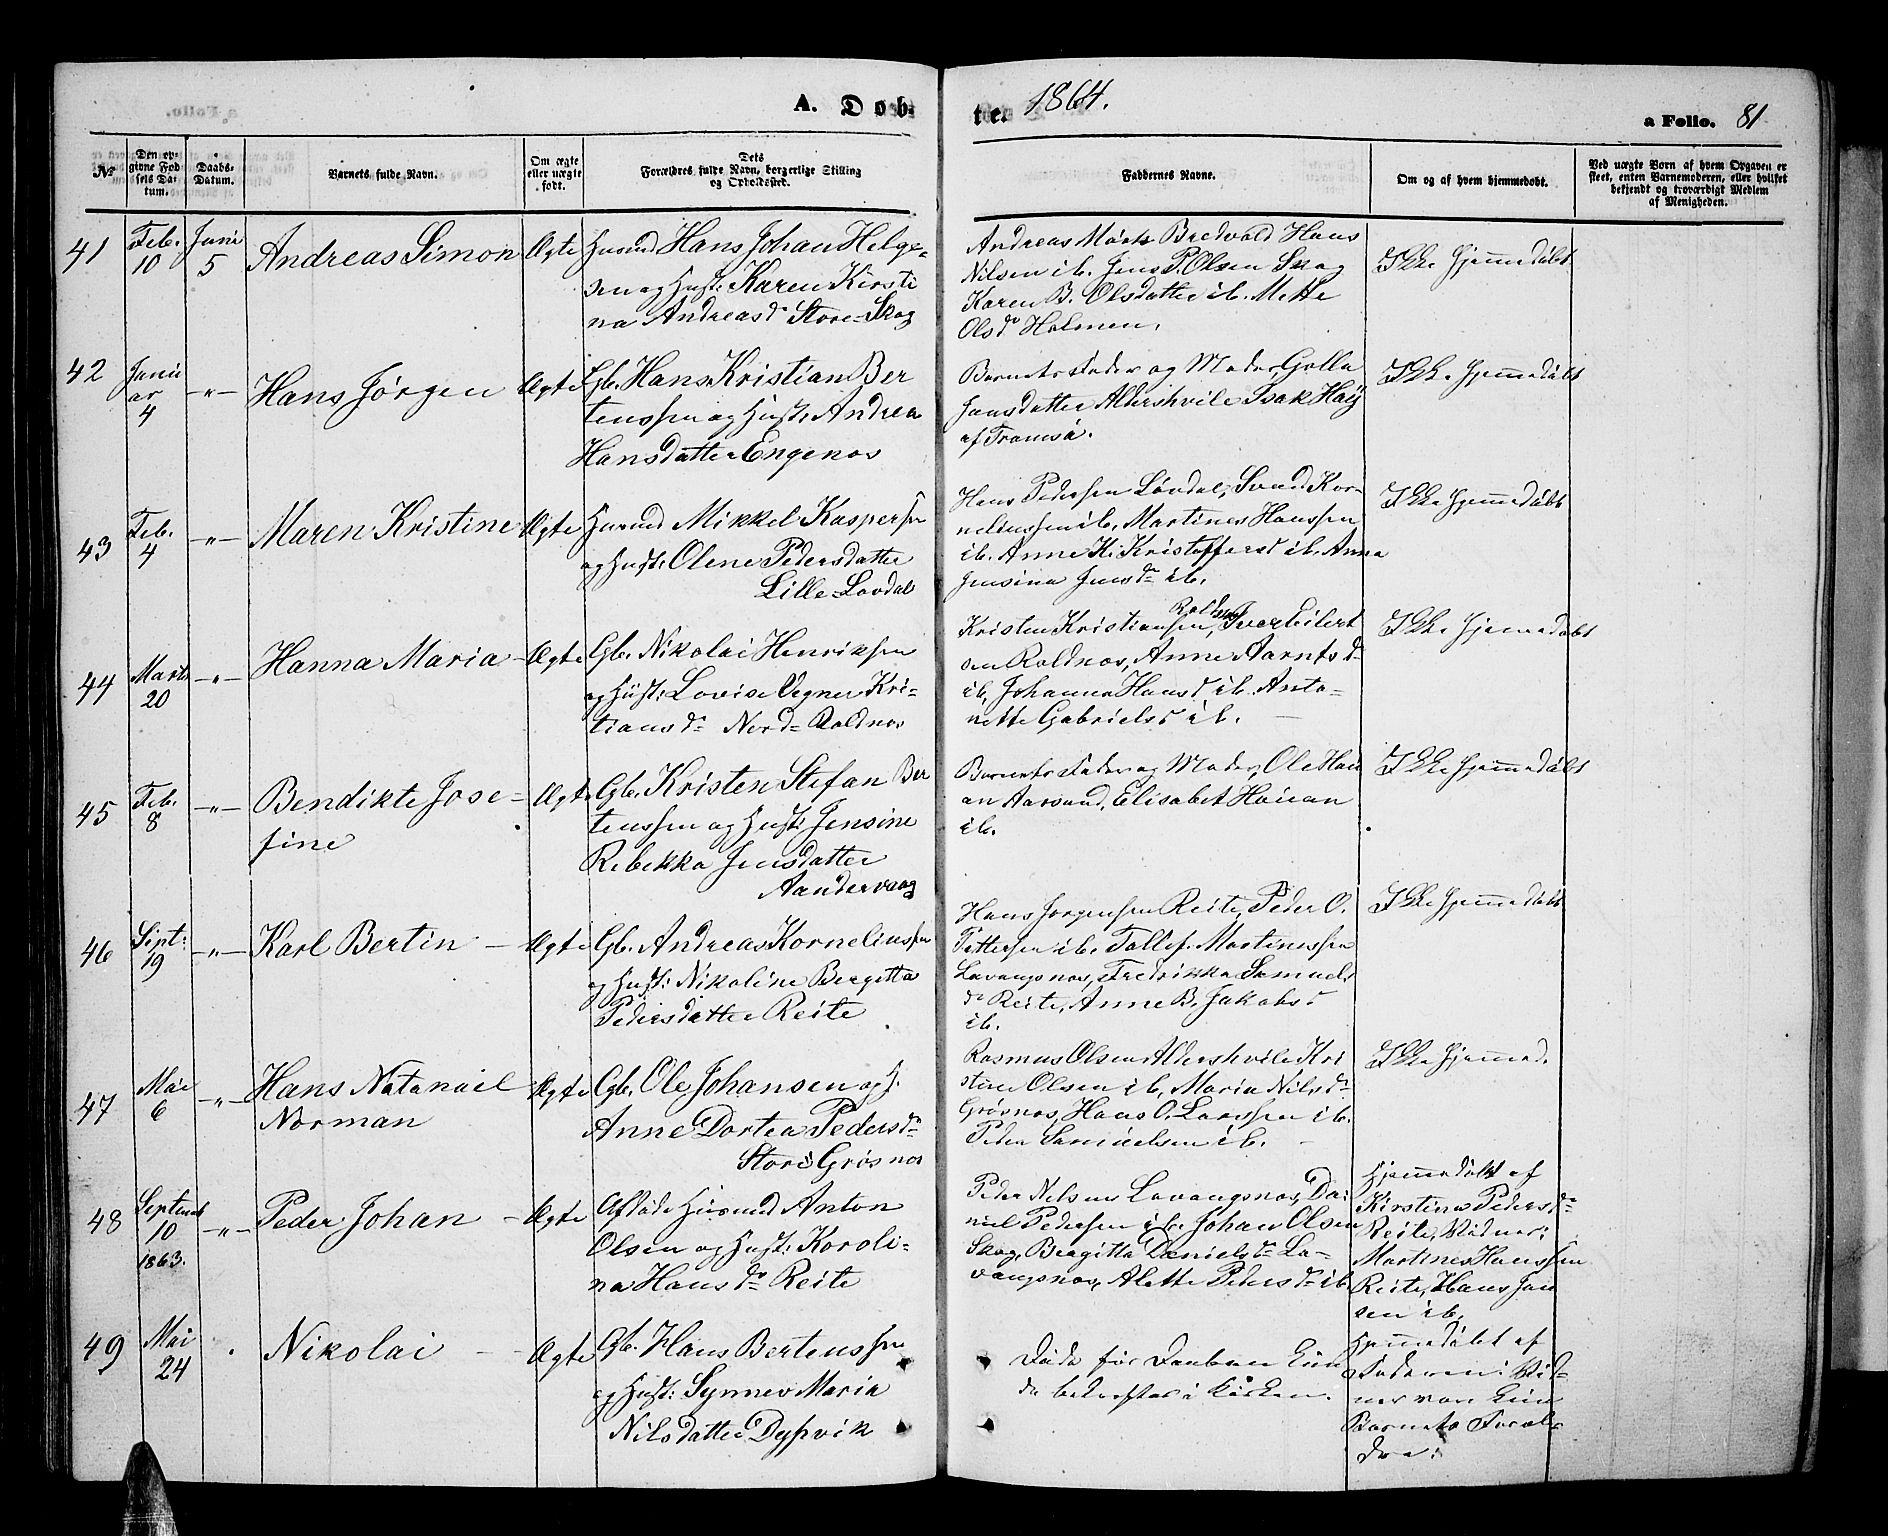 A. Døb
te. 1864.
a Follo. 81
No
Den op-
givne Fød-
sels Da-
tum.
Daabs-
Datum.
Barnets fulde Navn.
Om ægte
eller uægte
født.
Dets
Forældres fulde Navn, borgerlige Stilling
og Opholdssted.
Faddernes Navne.
Om og af hvem hjemmedøbt.
Ved uægte Børn af hvem Opgaven er
skeet, enten Barnemoderen, eller hvilket
bekjendt og troværdigt Medlem
af Menigheden.
41
Feb.
10
Juni
5
Andreas Simon
Ægte
Husmd Hans Johan Helge-
sen og Hust: Karen Kirsti
na Andreasd Store-Skog
Andreas Bredvold Hans
Nilsen ib. Jens P. Olsen Skog
Karen B. Olsdatter ib. Mette
Olsdr Holmen.
Ikke hjemmedøbt
42
Janu
ar
4
-"-
Hans Jørgen
Ægte
Gb. Hans Kristian Ber
tenssen og Hust: Andrea
Hansdatter Engenes
Barnets Fader og Moder, Golla
Jonsdatter Aldershvile Isak Høy
af Tromsø.
Ikke hjemmedøbt
43
Feb.
4
-"-
Maren Kristine
Ægte
Husmd Mikkel Kaspersen
og Hust: Olene Pedersdatter
Lille-Løvdal
Hans Pedersen Løvdal, Svend Kor-
neliussen ib. Martines Hanssen
ib. Anne K. Kristoffersd ib. Anna
Jensina Jensdr ib.
Ikke hjemmedøbt
44
Marts
20
-"-
Hanna Maria
Ægte
Gb. Nikolai Henriksen
og Hust: Lovise Vegner Kri-
stiansdr Nord-Roldnes
Kristen Kristiansen Roldnes, Iver Eilert
sen Roldnes, Anne Aarntsdr
ib, Johanna Hansd ib. Anto-
nette Gabrielsd ib.
Ikke hjemmedøbt
45
Feb.
8
-"-
Bendikte Jose-
fine
Ægte
Gb. Kristen Stefan Ber
tenssen og Hust: Jensine
Rebekka Jensdatter
Aandervaag
Barnets Fader og Moder, Ole
Aarsand, Elisabet
ib.
Ikke hjemmedøbt
46
Sept:
19
-"-
Karl Bertin
Ægte
Gb. Andreas Korneliussen
og Hust: Nikoline Bergitta
Pedersdatter Reite
Hans Jørgensen Reite, Peder O.
Pettersen ib. Tollef Martinussen
Lavangsnes, Fredrikka Samuels
dr Reite, Anne B. Jakobsd
ib.
Ikke hjemmedøbt
47
Mai
6
-"-
Hans Natanael
Norman
Ægte
Gb. Ole Johansen og H.
Anne Dortea Pedersdr
Store Grøsnes
Rasmus Olsen Aldershvile Kri
stine Olsen ib, Maria Nilsdr
Grøsnes, Hans O. Larssen ib.
Peder Samuelsen ib.
Ikke hjemmed.
48
Septemb
10
1863.
-"-
Peder Johan
Ægte
Afdøde Husmd Anton
Olsen og Hust: Karoli-
na Hansdr Reite
Peder Nilsen Lavangsnes, Da-
niel Pedersen ib. Johan Olsen
Skog, Bergitta Danielsdr La-
vangsnes, Alette Pedersdr ib
Hjemmedøbt af
Kirstina Pedersdr
Reite, Vidner:
Martines Hanssen
Reite, Hans Jan
sen ib.
49
Mai
24
Nikolai
Ægte
Gb. Hans Bertenssen
og Hust: Synnev Maria
Nilsdatter Dypvik
Døde før Daaben kun
de bekræftes i Kirken.
Hjemmedøbt af
Faderen: Vid-
ner var kun
Barnets Foræl-
dre.